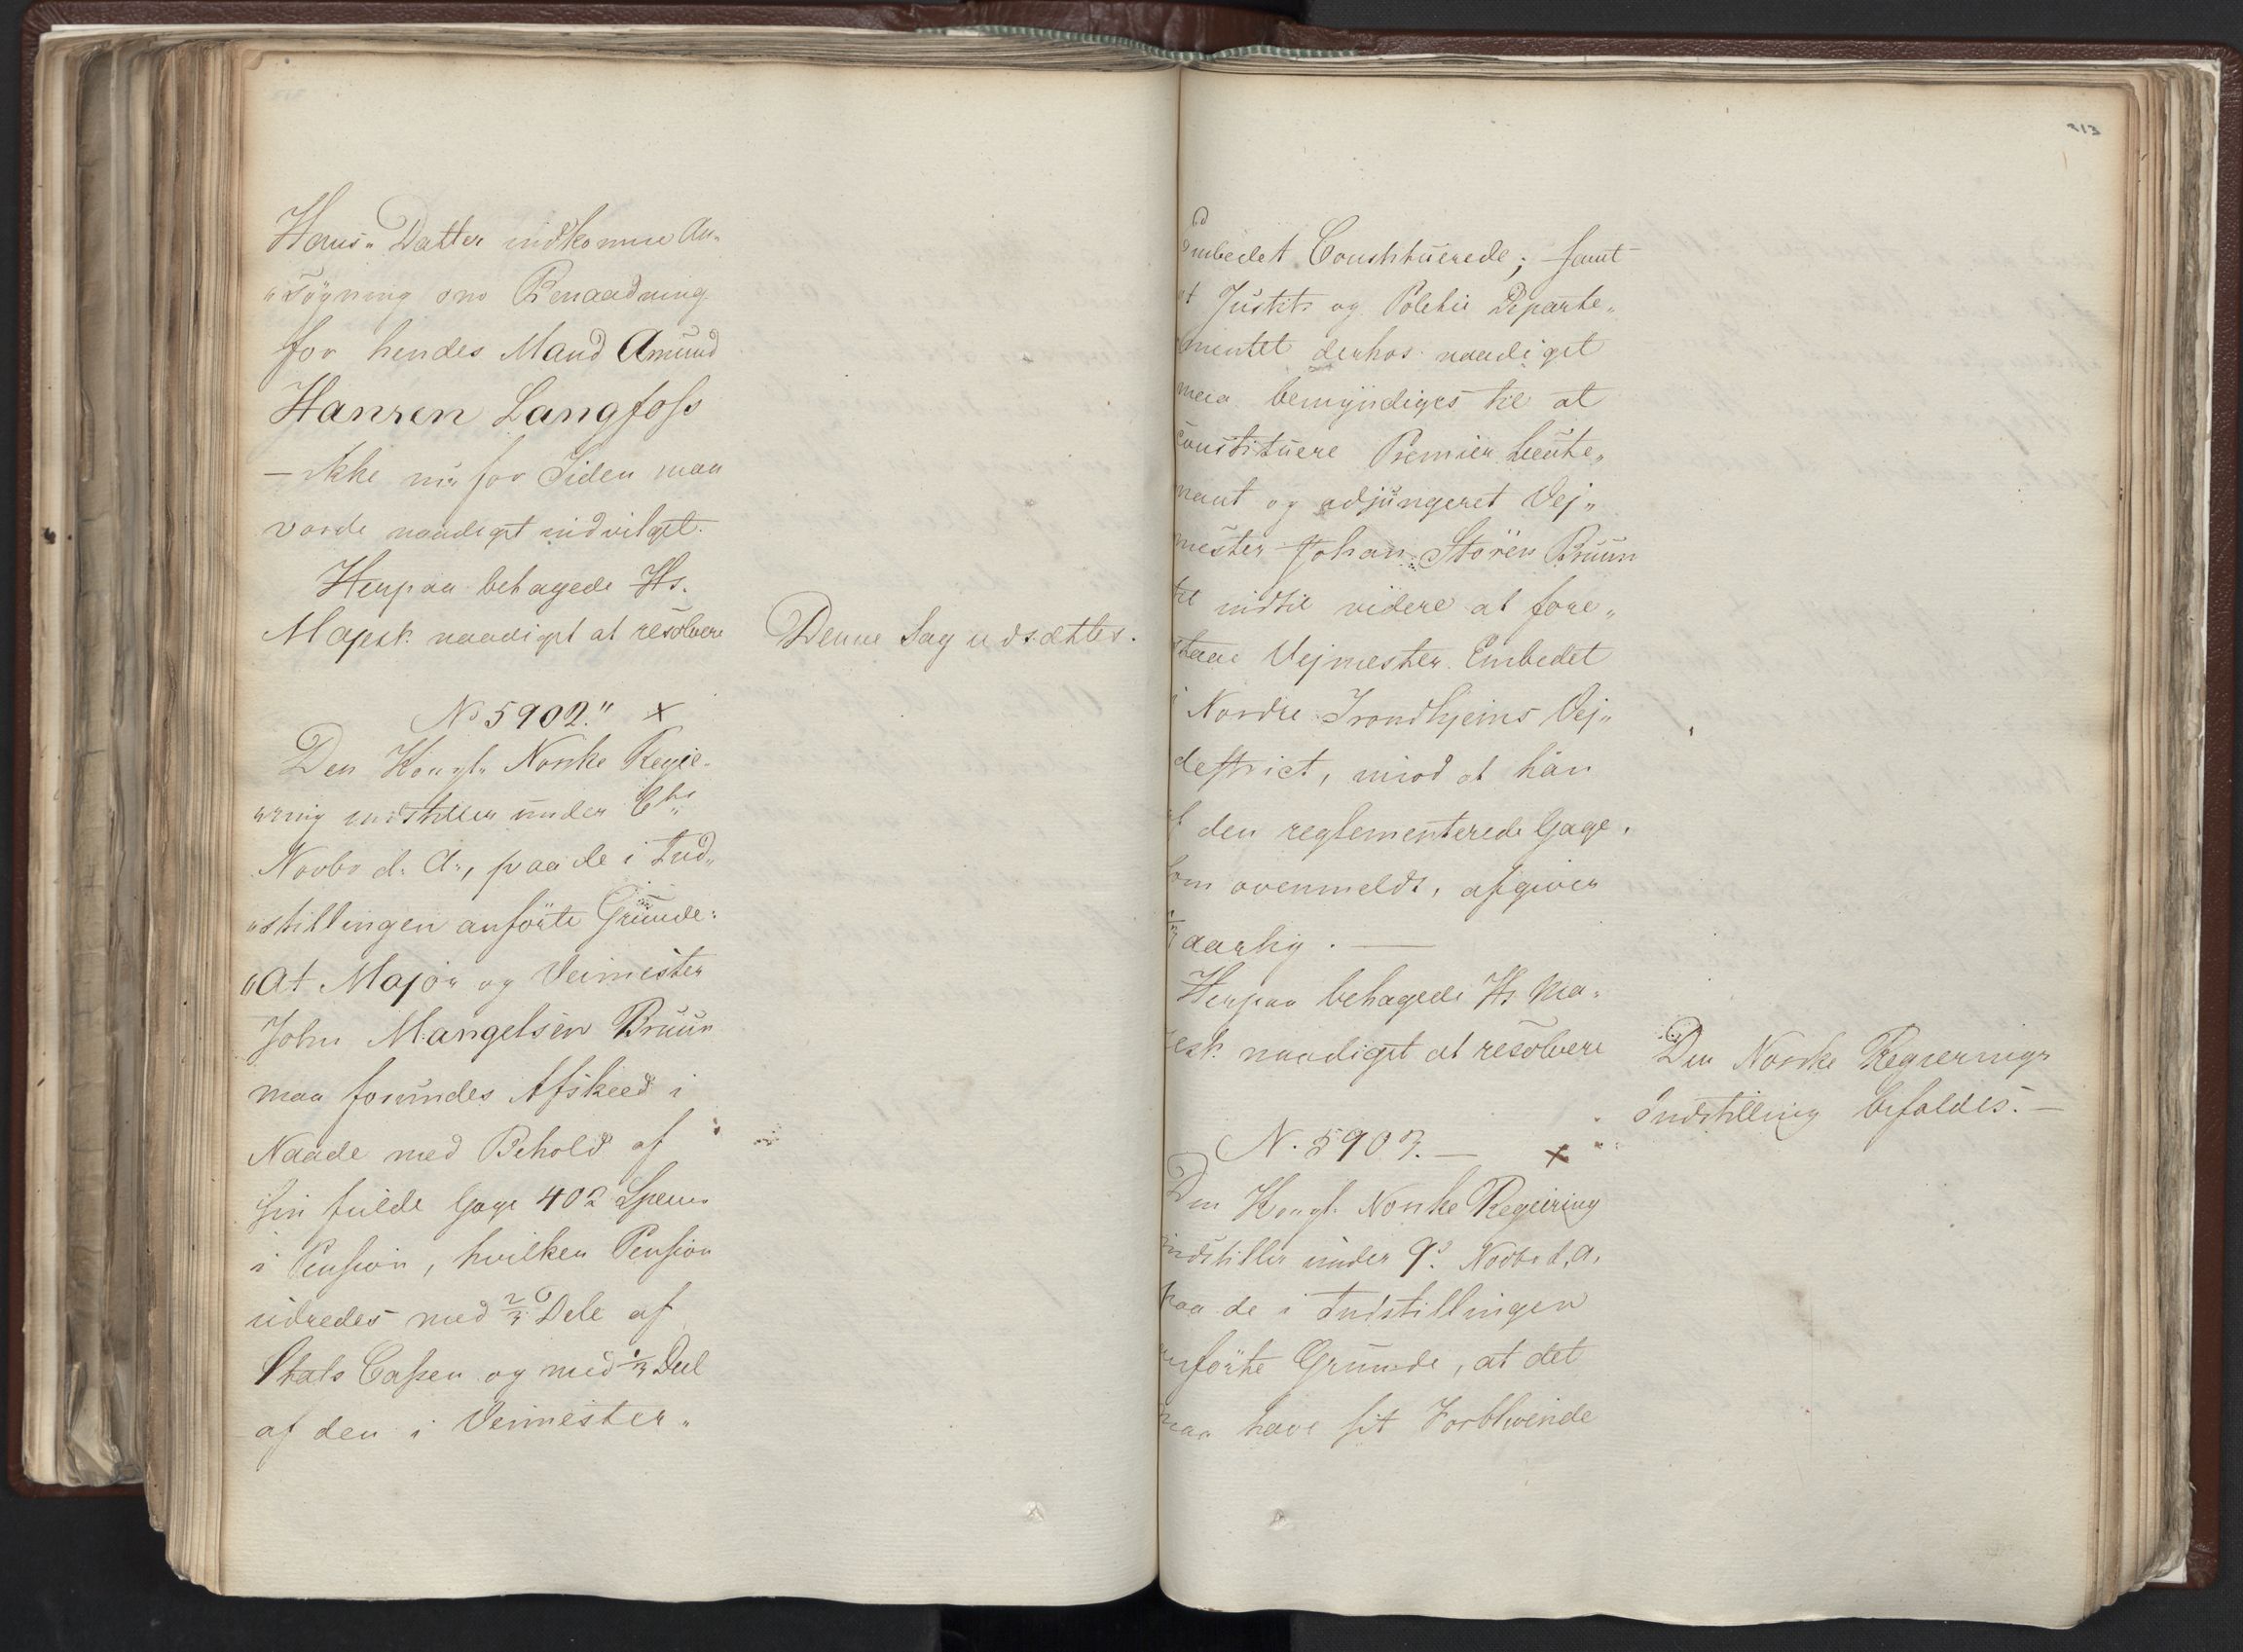 Hans„ Datter indkomne An„
„søgning om Benaadning
for hendes Mand Amund
Hansen Langfoss
— ikke nu for Tiden maa
vorde naadigst indvilget.
Herpaa behagede Hs.
Majest. naadigst at resolvere
Denne Sag udsættes.
No 5902." x
Den Kongl. Norske Regje„
„ring indstiller under 6te
Novbr d. A., paa de i Ind„
„stillingen anførte Grunde:
„At Major og Veimester
John Mangelsen Bruun
maa forundes Afskeed i
Naade med Behold af
sin fulde Gage 402 Specier
i Pension, hvilken Pension
udredes med 2/3 Dele af
Stats Cassen og med 1/3 Deel
af den i Veimester„
213
Embedet Constituerede; samt
at Justits og Politie Departe„
mentet derhos naadigst
maa bemyndiges til at
constituere Premier Lieute„
nant og adjungeret Vej„
mester Johan Støren Bruun
til indtil videre at fore„
staae Vejmester Embedet
i Nordre Trondhjems Vej„
destrict, imod at han
af den reglementerede Gage,
som ovenmeldt, afgiver
1/3 aarlig. —
Herpaa behagede Hs Ma„
jest. naadigst at resolvere
Den Norske Regjerings
Indstilling bifaldes. —
N. 5903. — x
Den Kongl. Norske Regjering
indstiller under 9de Novbr d. A.
paa de i Indstillingen
anførte Grunde, at det
maa have sit Forblivende